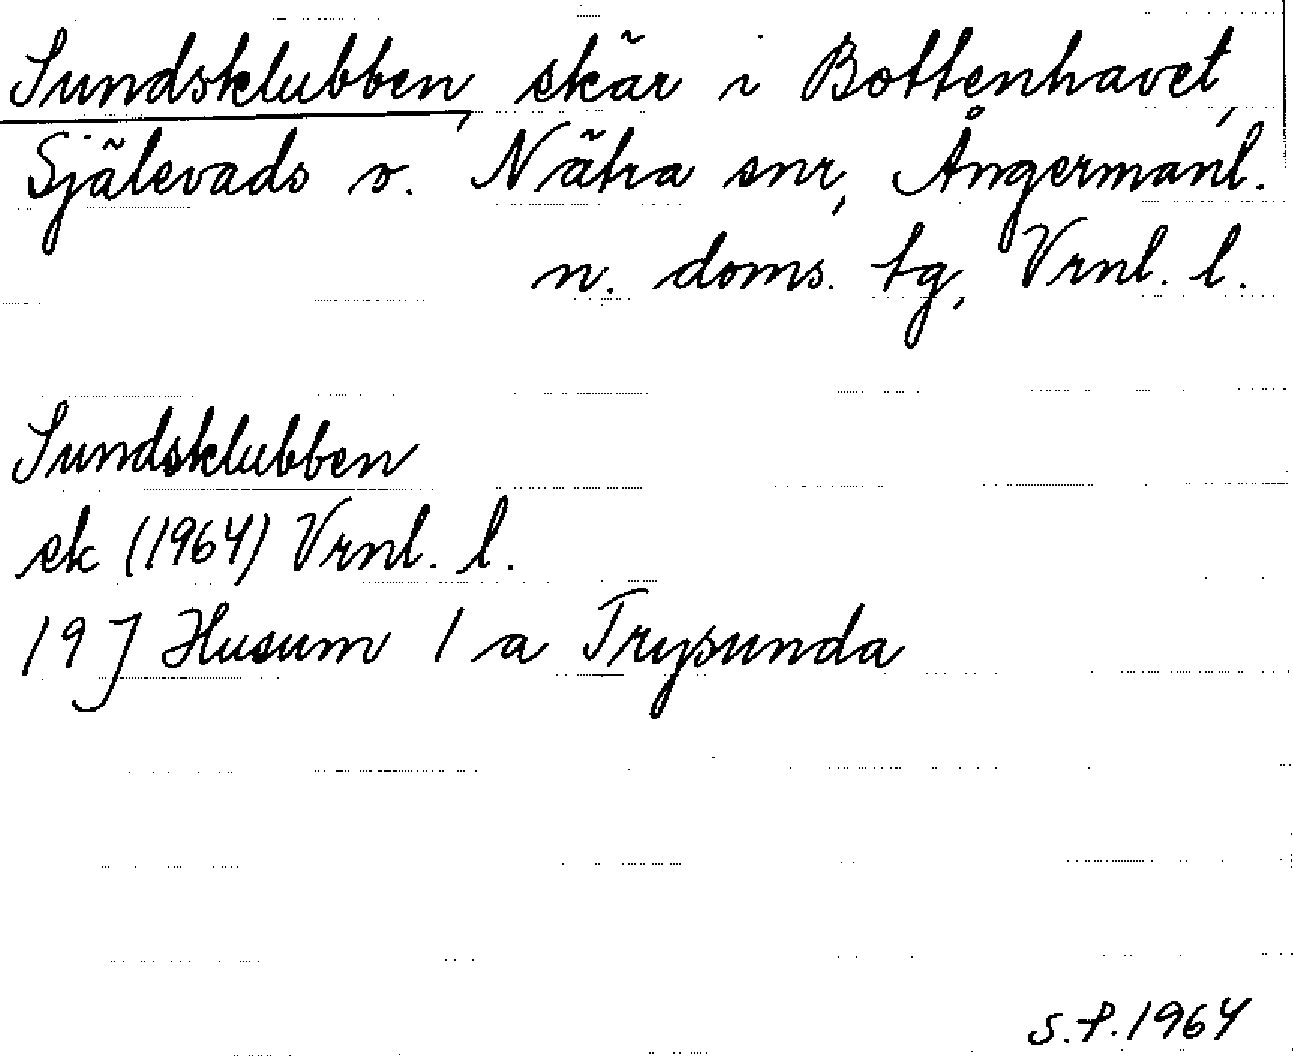 Sundsklubben, skär i Bottenhavet,
Själevads o. Nätra snr, Ångermanl.
n. doms. tg, Vrnl. l.
Sundsklubben
ek (1964) Vrnl. l.
19 J Husum 1 a Trysunda
S.F. 1964